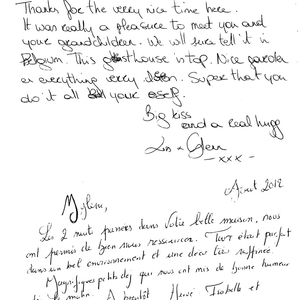 Thanks for the verry nice time here.
It was really a pleasure to meet you and
your grandchildren. We will sure tell it in
Belgium. This guesthouse in top. Nice garden
en everything verry clean. Super that you
do it all your self.
Big kiss
and a real hugg
Lin &
- xxx -
Août 2012
Les 2 nuits passées dans Votre belle maison, nous
ont permis de bien nous ressourcer. Tout était parfait
dans un bel environnement et une déco très raffinée.
Magnifiques petits dej qui nous ont mis de bonne humeur
A bientôt Hervé Isabelle et